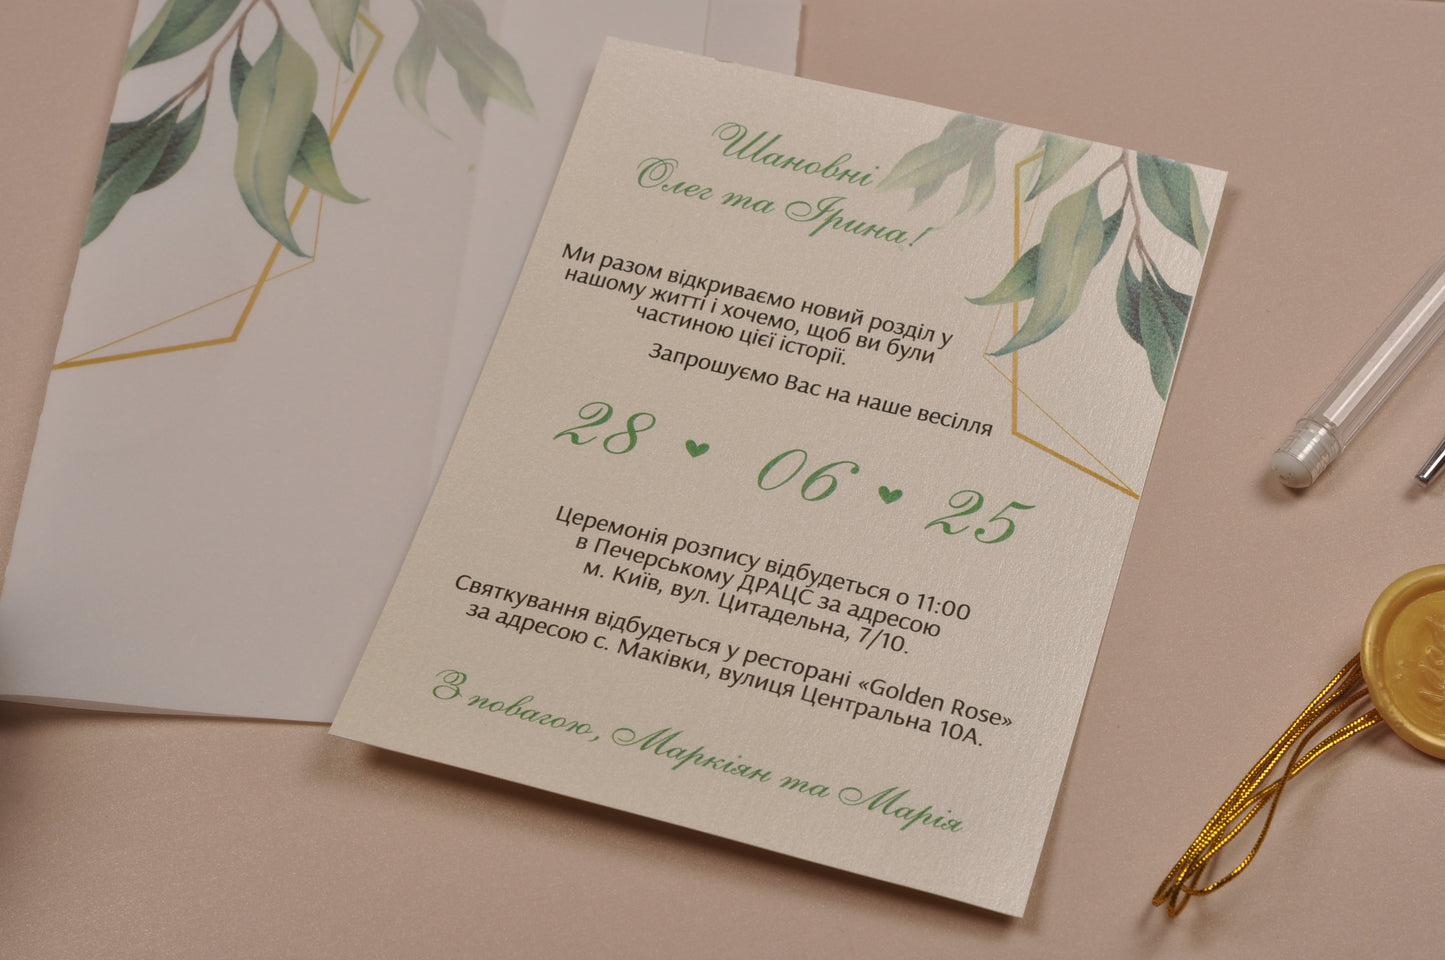 Шановні
Олег та Ірина!
Ми разом відкриваємо новий розділ у
нашому житті і хочемо, щоб ви були
частиною цієї історії.
Запрошуємо Вас на наше весілля
28 ♥ 06 ♥ 25
Церемонія розпису відбудеться о 11:00
в Печерському ДРАЦС за адресою
м. Київ, вул. Цитадельна, 7/10.
Святкування відбудеться у ресторані «Golden Rose»
за адресою с. Маківки, вулиця Центральна 10А.
З повагою, Маркіян та Марія